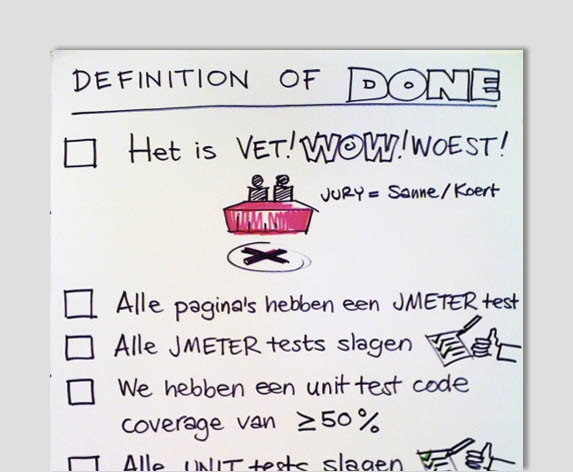 DEFINITION OF DONE
Het is VET! WOW! WOEST!
JURY = Sanne/Koert
Alle pagina's hebben een JMETER test
Alle JMETER tests slagen
We hebben een unit test code
coverage van ≥50%
Alle UNIT tests slagen